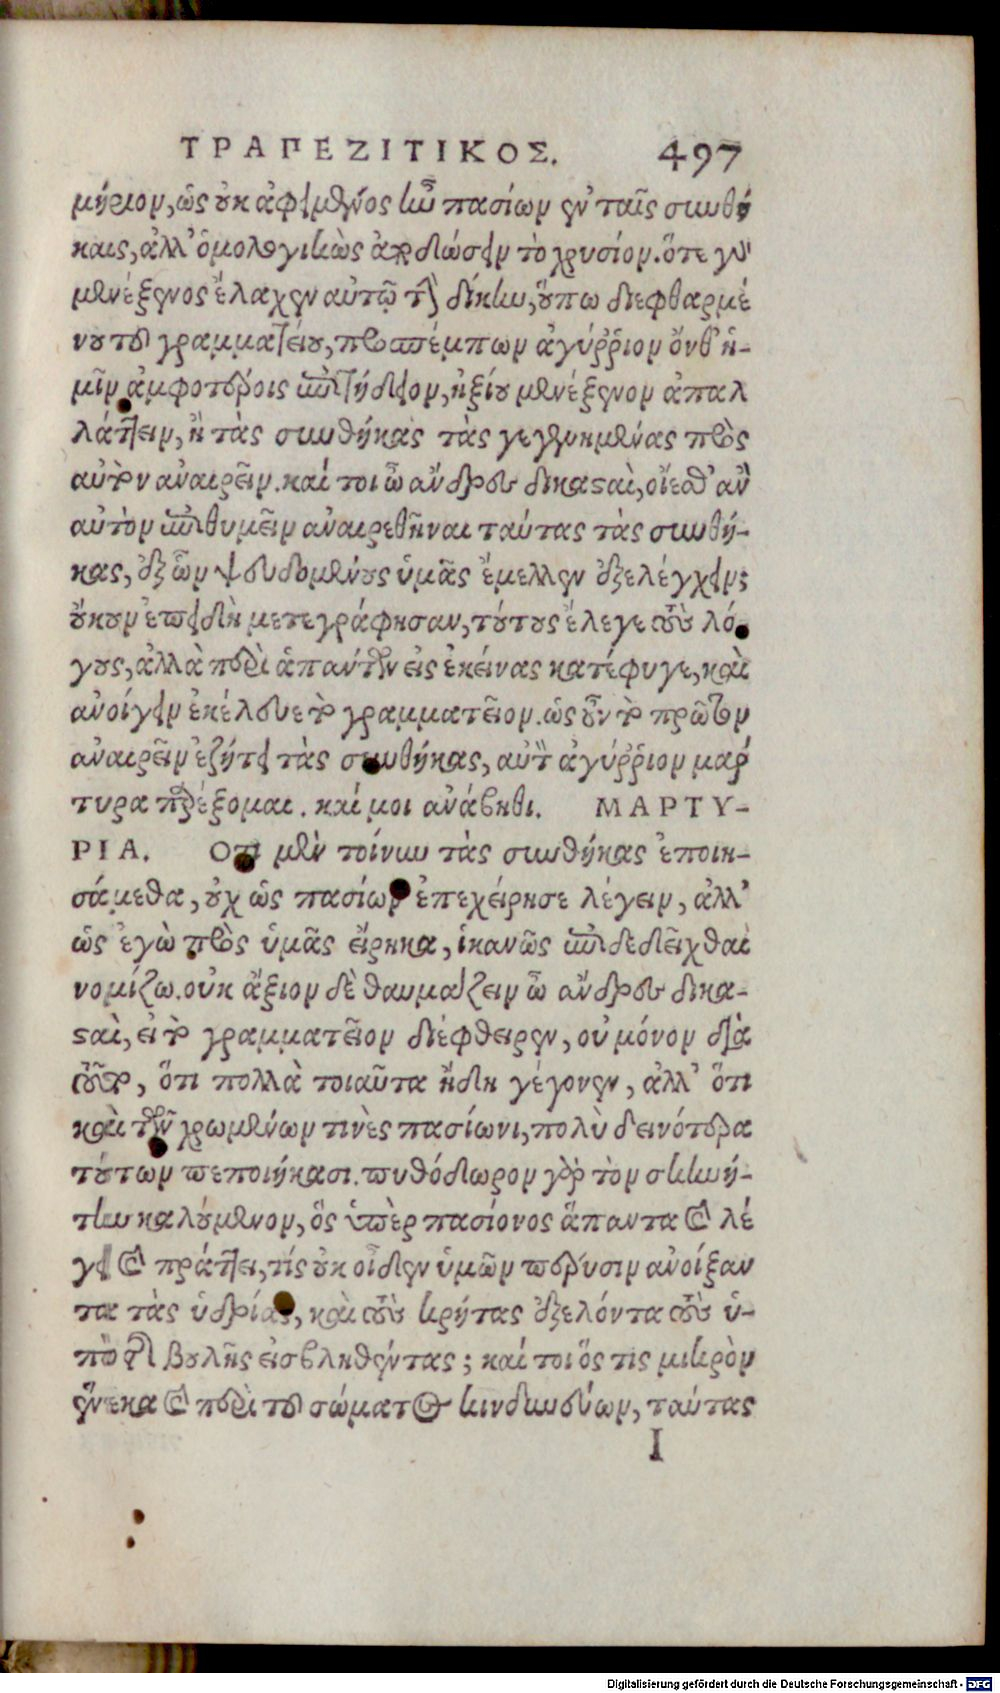 ΤΡΑΠΕΖΙΤΙΚΟΣ. 497
μήριον, ὡς οὐκ ἀφειμένος ἦν πασίων ἐν ταῖς συνθή
καις, ἀλλ' ὁμολογηκὼς ἀποδώσειν τὸ χρυσίον. ὅτε γὰρ
μενέξενος ἔλαχεν αὐτῷ τὴν δίκην, οὔπω διεφθαρμέ
νου τοῦ γραμματείου, προσπέμπων ἀγύρριον ὄνθ' ἡ-
μῖν ἀμφοτέροις ἐπιτήδειον, ἠξίου μενέξενον ἀπαλ
λάττειν, ἢ τὰς συνθήκας τὰς γεγενημένας πρὸς
αὐτὸν ἀναιρεῖν. καί τοι ὦ ἄνδρες δικασταὶ, οἴεσθ' ἂν
αὐτὸν ἐπιθυμεῖν ἀναιρεθῆναι ταύτας τὰς συνθή-
κας, ἐξ ὧν ψευδομένους ὑμᾶς ἔμελλεν ἐξελέγχειν;
οὔκουν ἐπειδὴ μετεγράφησαν, τούτους ἔλεγε τοὺς λό
γους, ἀλλὰ περὶ ἁπάντων εἰς ἐκείνας κατέφυγε, καὶ
ἀνοίγειν ἐκέλευε τὸ γραμματεῖον. ὡς οὖν τὸ πρῶτον
ἀναιρεῖν ἐζήτει τὰς συνθήκας, αὐτὸν ἀγύρριον μάρ
τυρα παρέξομαι. καί μοι ἀνάβηθι. ΜΑΡΤΥ-
ΡΙΑ. Οτι μὲν τοίνυν τὰς συνθήκας ἐποιη-
σάμεθα, οὐχ ὡς πασίων ἐπεχείρησε λέγειν, ἀλλ'
ὡς ἐγὼ πρὸς ὑμᾶς εἴρηκα, ἱκανῶς ἐπιδεδεῖχθαι
νομίζω. οὐκ ἄξιον δὲ θαυμάζειν ὦ ἄνδρες δικα-
σταὶ, εἰ τὸ γραμματεῖον διέφθειρεν, οὐ μόνον διὰ
τοῦτο, ὅτι πολλὰ τοιαῦτα ἤδη γέγονεν, ἀλλ' ὅτι
καὶ τῶν χρωμένων τινὲς πασίωνι, πολὺ δεινότερα
τούτων πεποιήκασι. πυθόδωρον γὰρ τὸν σκηνή-
την καλούμενον, ὃς ὑπὲρ πασίονος ἅπαντα καὶ λέ
γει καὶ πράττει, τίς οὐκ οἶδεν ὑμῶν πέρυσιν ἀνοίξαν
τα τὰς ὑδρίας, καὶ τοὺς κρήτας ἐξελόντα τοὺς ὑ-
πὸ τῆς βουλῆς εἰσβληθέντας; καί τοι ὅς τις μικρὸν
ἕνεκα καὶ περὶ τοῦ σώματος κινδυνεύων, ταύτας
I
Digitalisierung gefördert durch die Deutsche Forschungsgemeinschaft - DFG